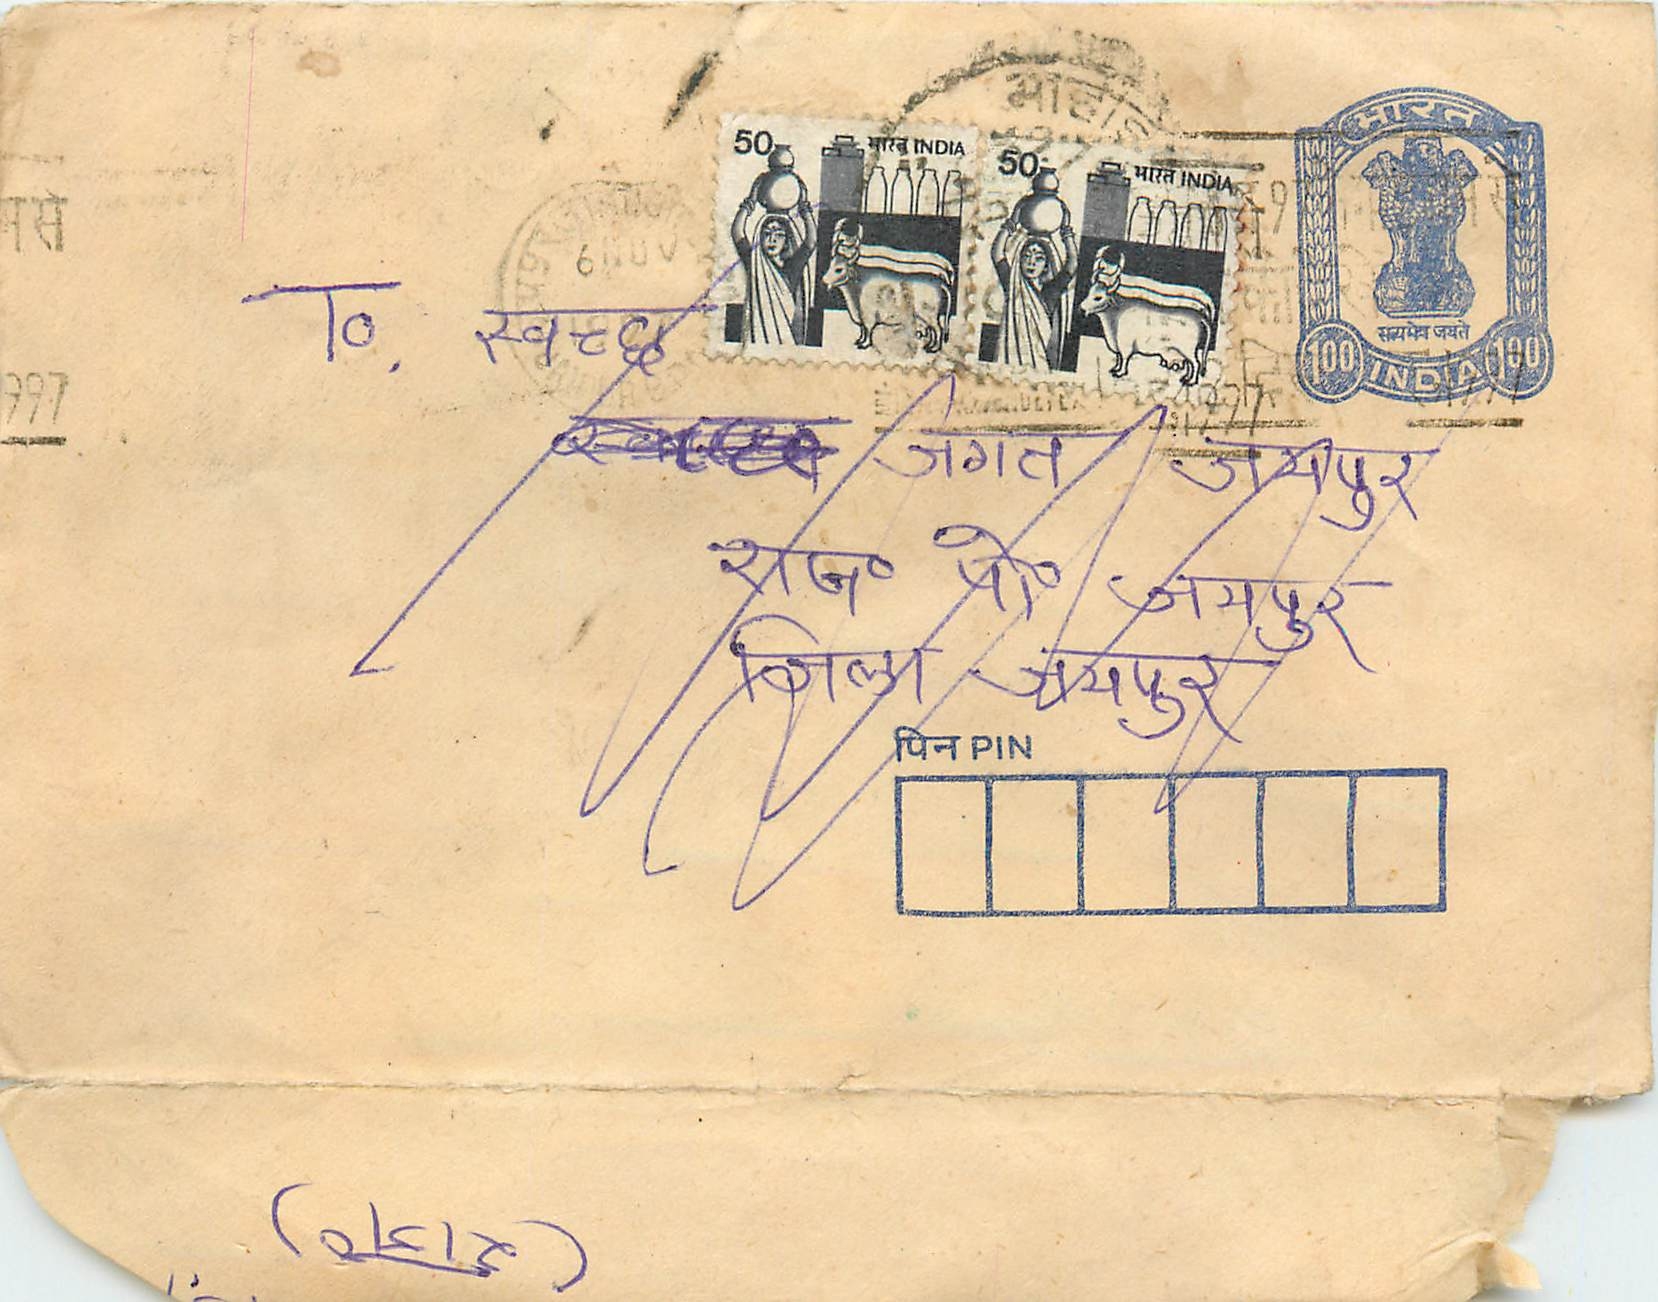 भारत
सत्यमेव जयते
100 INDIA 100
50 भारत INDIA
50 भारत INDIA
6 NOV
1997
To, स्वच्छ
जगत जयपुर
राज० पो० जयपुर
जिला जयपुर
पिन PIN
(राज०)